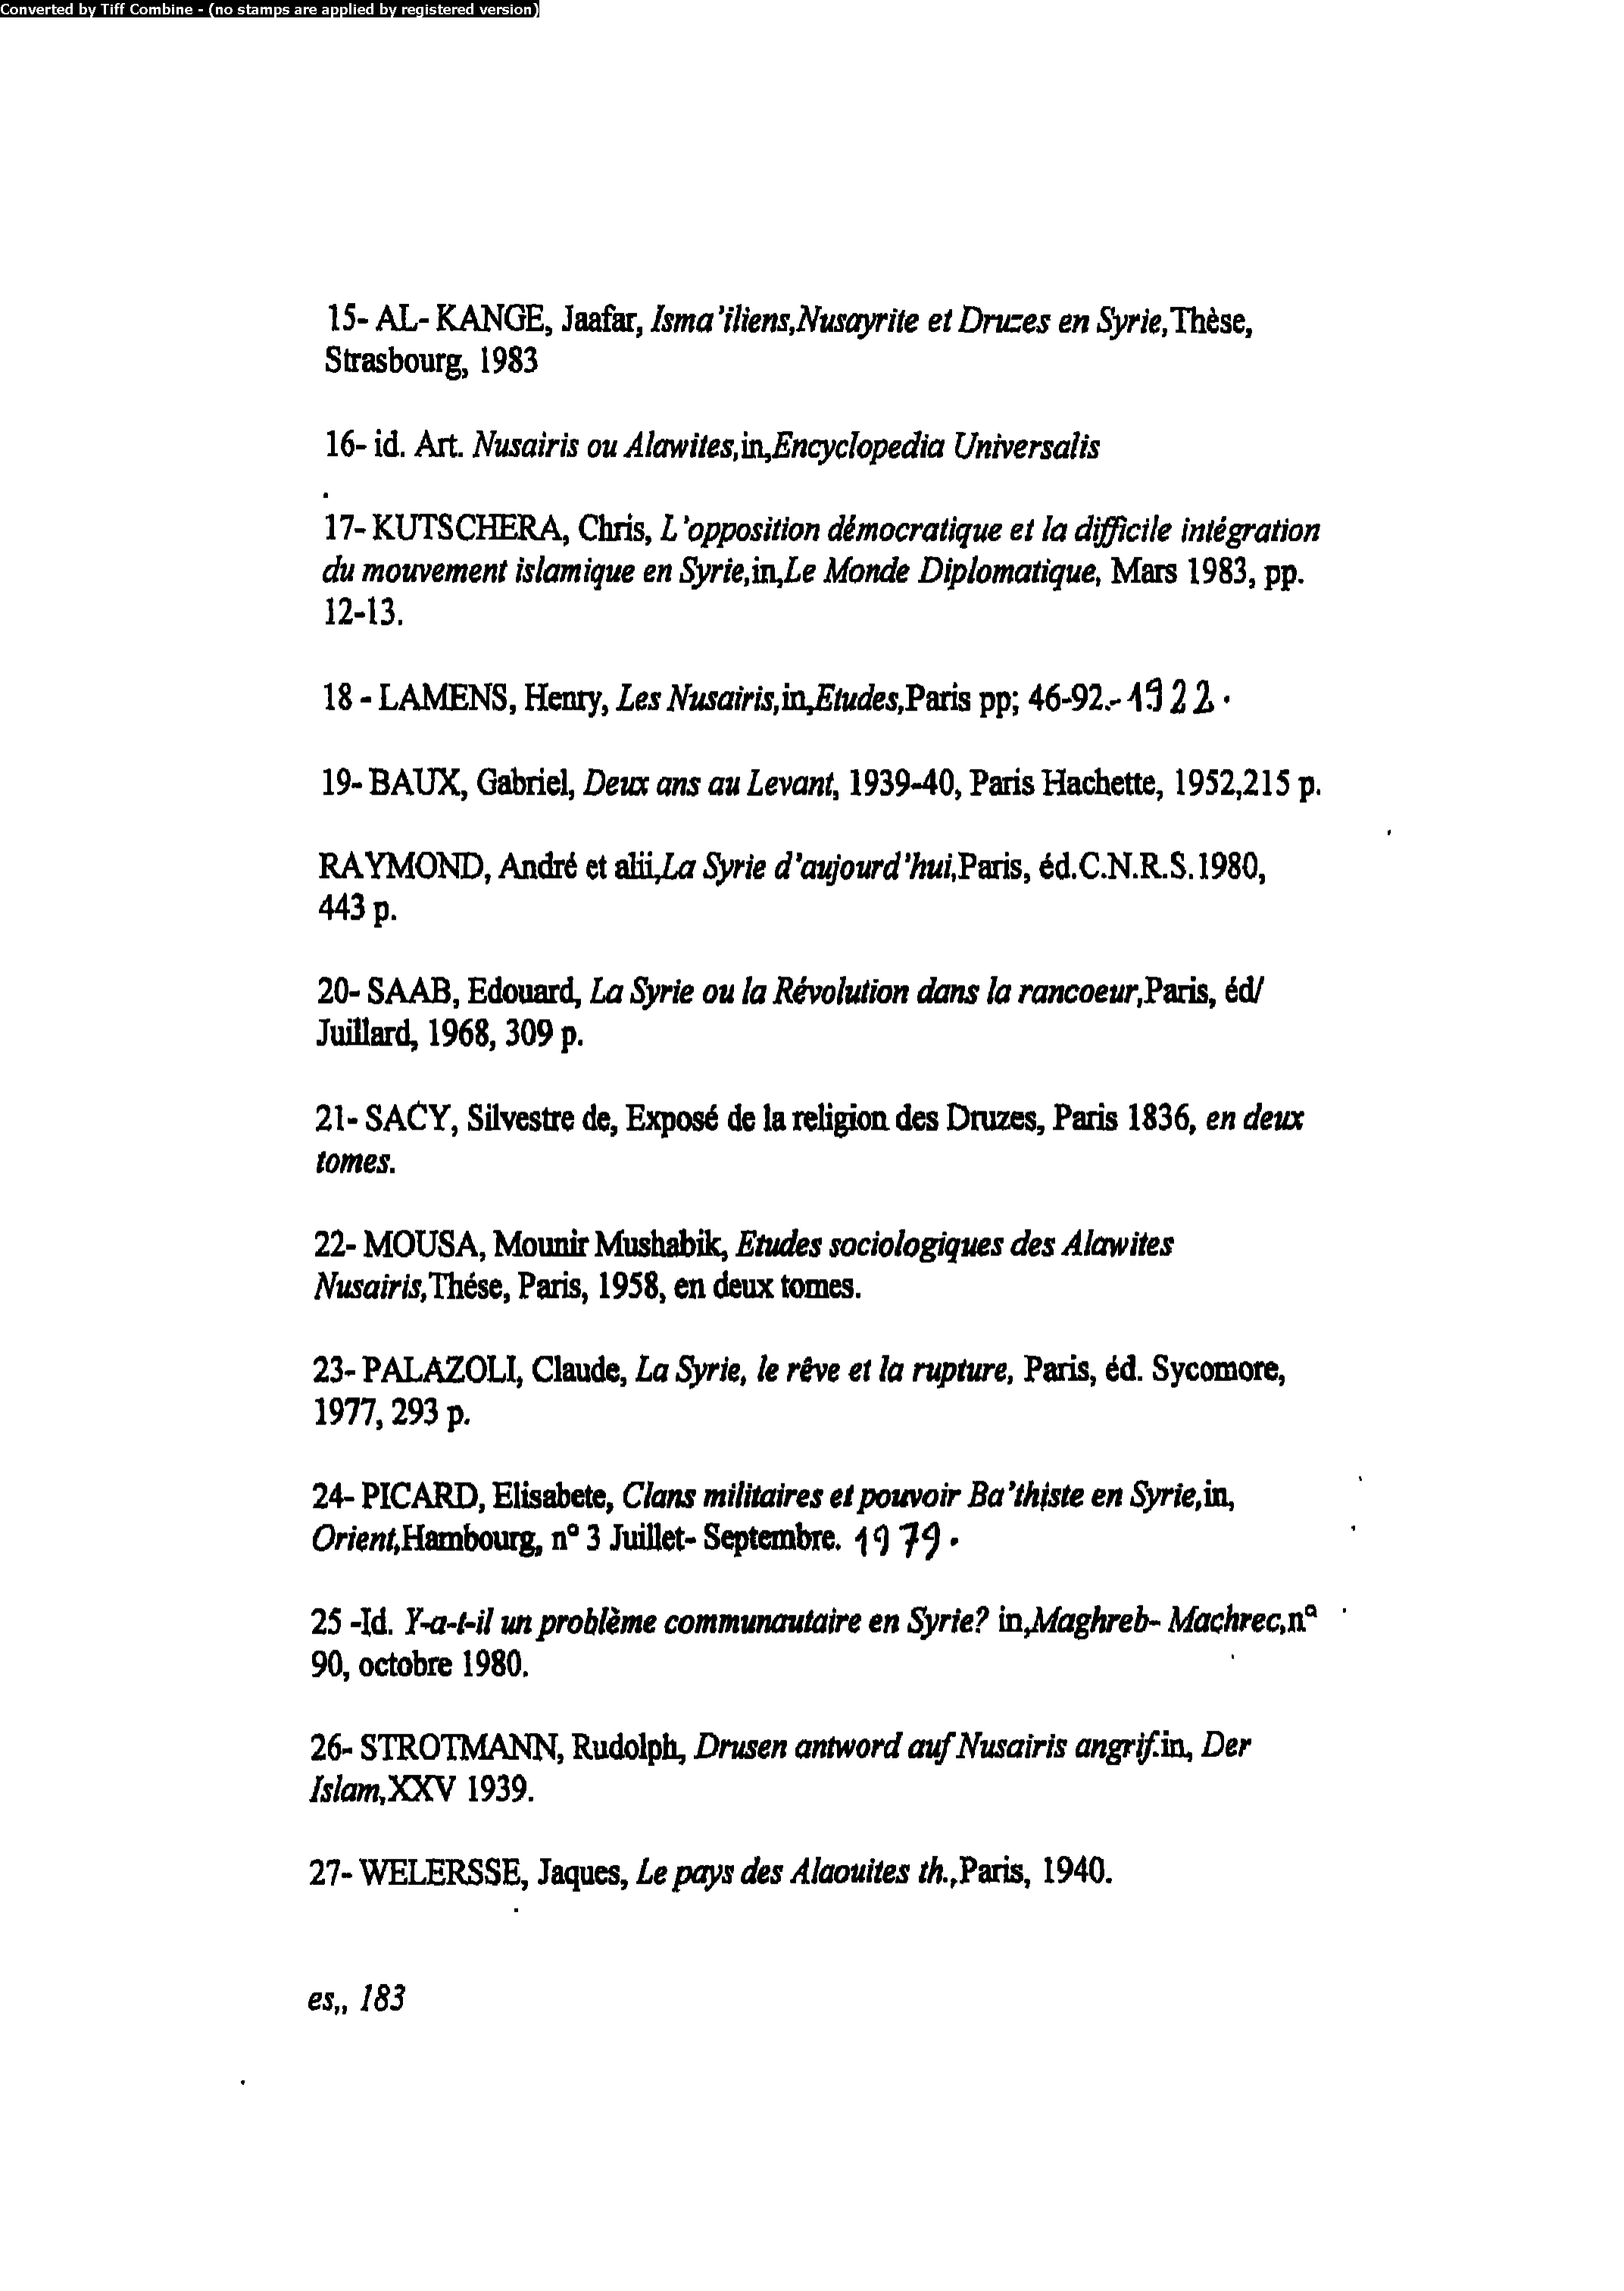 Converted by Tiff Combine - (no stamps are applied by registered version)
15- AL- KANGE, Jaafar, Isma'iliens,Nusayrite et Druzes en Syrie,Thèse,
Strasbourg, 1983
16- id. Art. Nusairis ou Alawites,in,Encyclopedia Universalis
17- KUTSCHERA, Chris, L'opposition démocratique et la difficile intégration
du mouvement islamique en Syrie,in,Le Monde Diplomatique, Mars 1983, pp.
12-13.
18 - LAMENS, Henry, Les Nusairis,in,Etudes,Paris pp; 46-92.- 1922.
19- BAUX, Gabriel, Deux ans au Levant, 1939-40, Paris Hachette, 1952,215 p.
RAYMOND, André et alii,La Syrie d'aujourd'hui,Paris, éd.C.N.R.S.1980,
443 p.
20- SAAB, Edouard, La Syrie ou la Révolution dans la rancoeur,Paris, éd/
Juillard, 1968, 309 p.
21- SACY, Silvestre de, Exposé de la religion des Druzes, Paris 1836, en deux
tomes.
22- MOUSA, Mounir Mushabik, Etudes sociologiques des Alawites
Nusairis,Thése, Paris, 1958, en deux tomes.
23- PALAZOLI, Claude, La Syrie, le rêve et la rupture, Paris, éd. Sycomore,
1977, 293 p.
24- PICARD, Elisabete, Clans militaires et pouvoir Ba'thiste en Syrie,in,
Orient,Hambourg, n° 3 Juillet- Septembre. 1979.
25 -Id. Y-a-t-il un problème communautaire en Syrie? in,Maghreb- Machrec,nª
90, octobre 1980.
26- STROTMANN, Rudolph, Drusen antword auf Nusairis angrif.in, Der
Islam,XXV 1939.
27- WELERSSE, Jaques, Le pays des Alaouites th.,Paris, 1940.
es,, 183